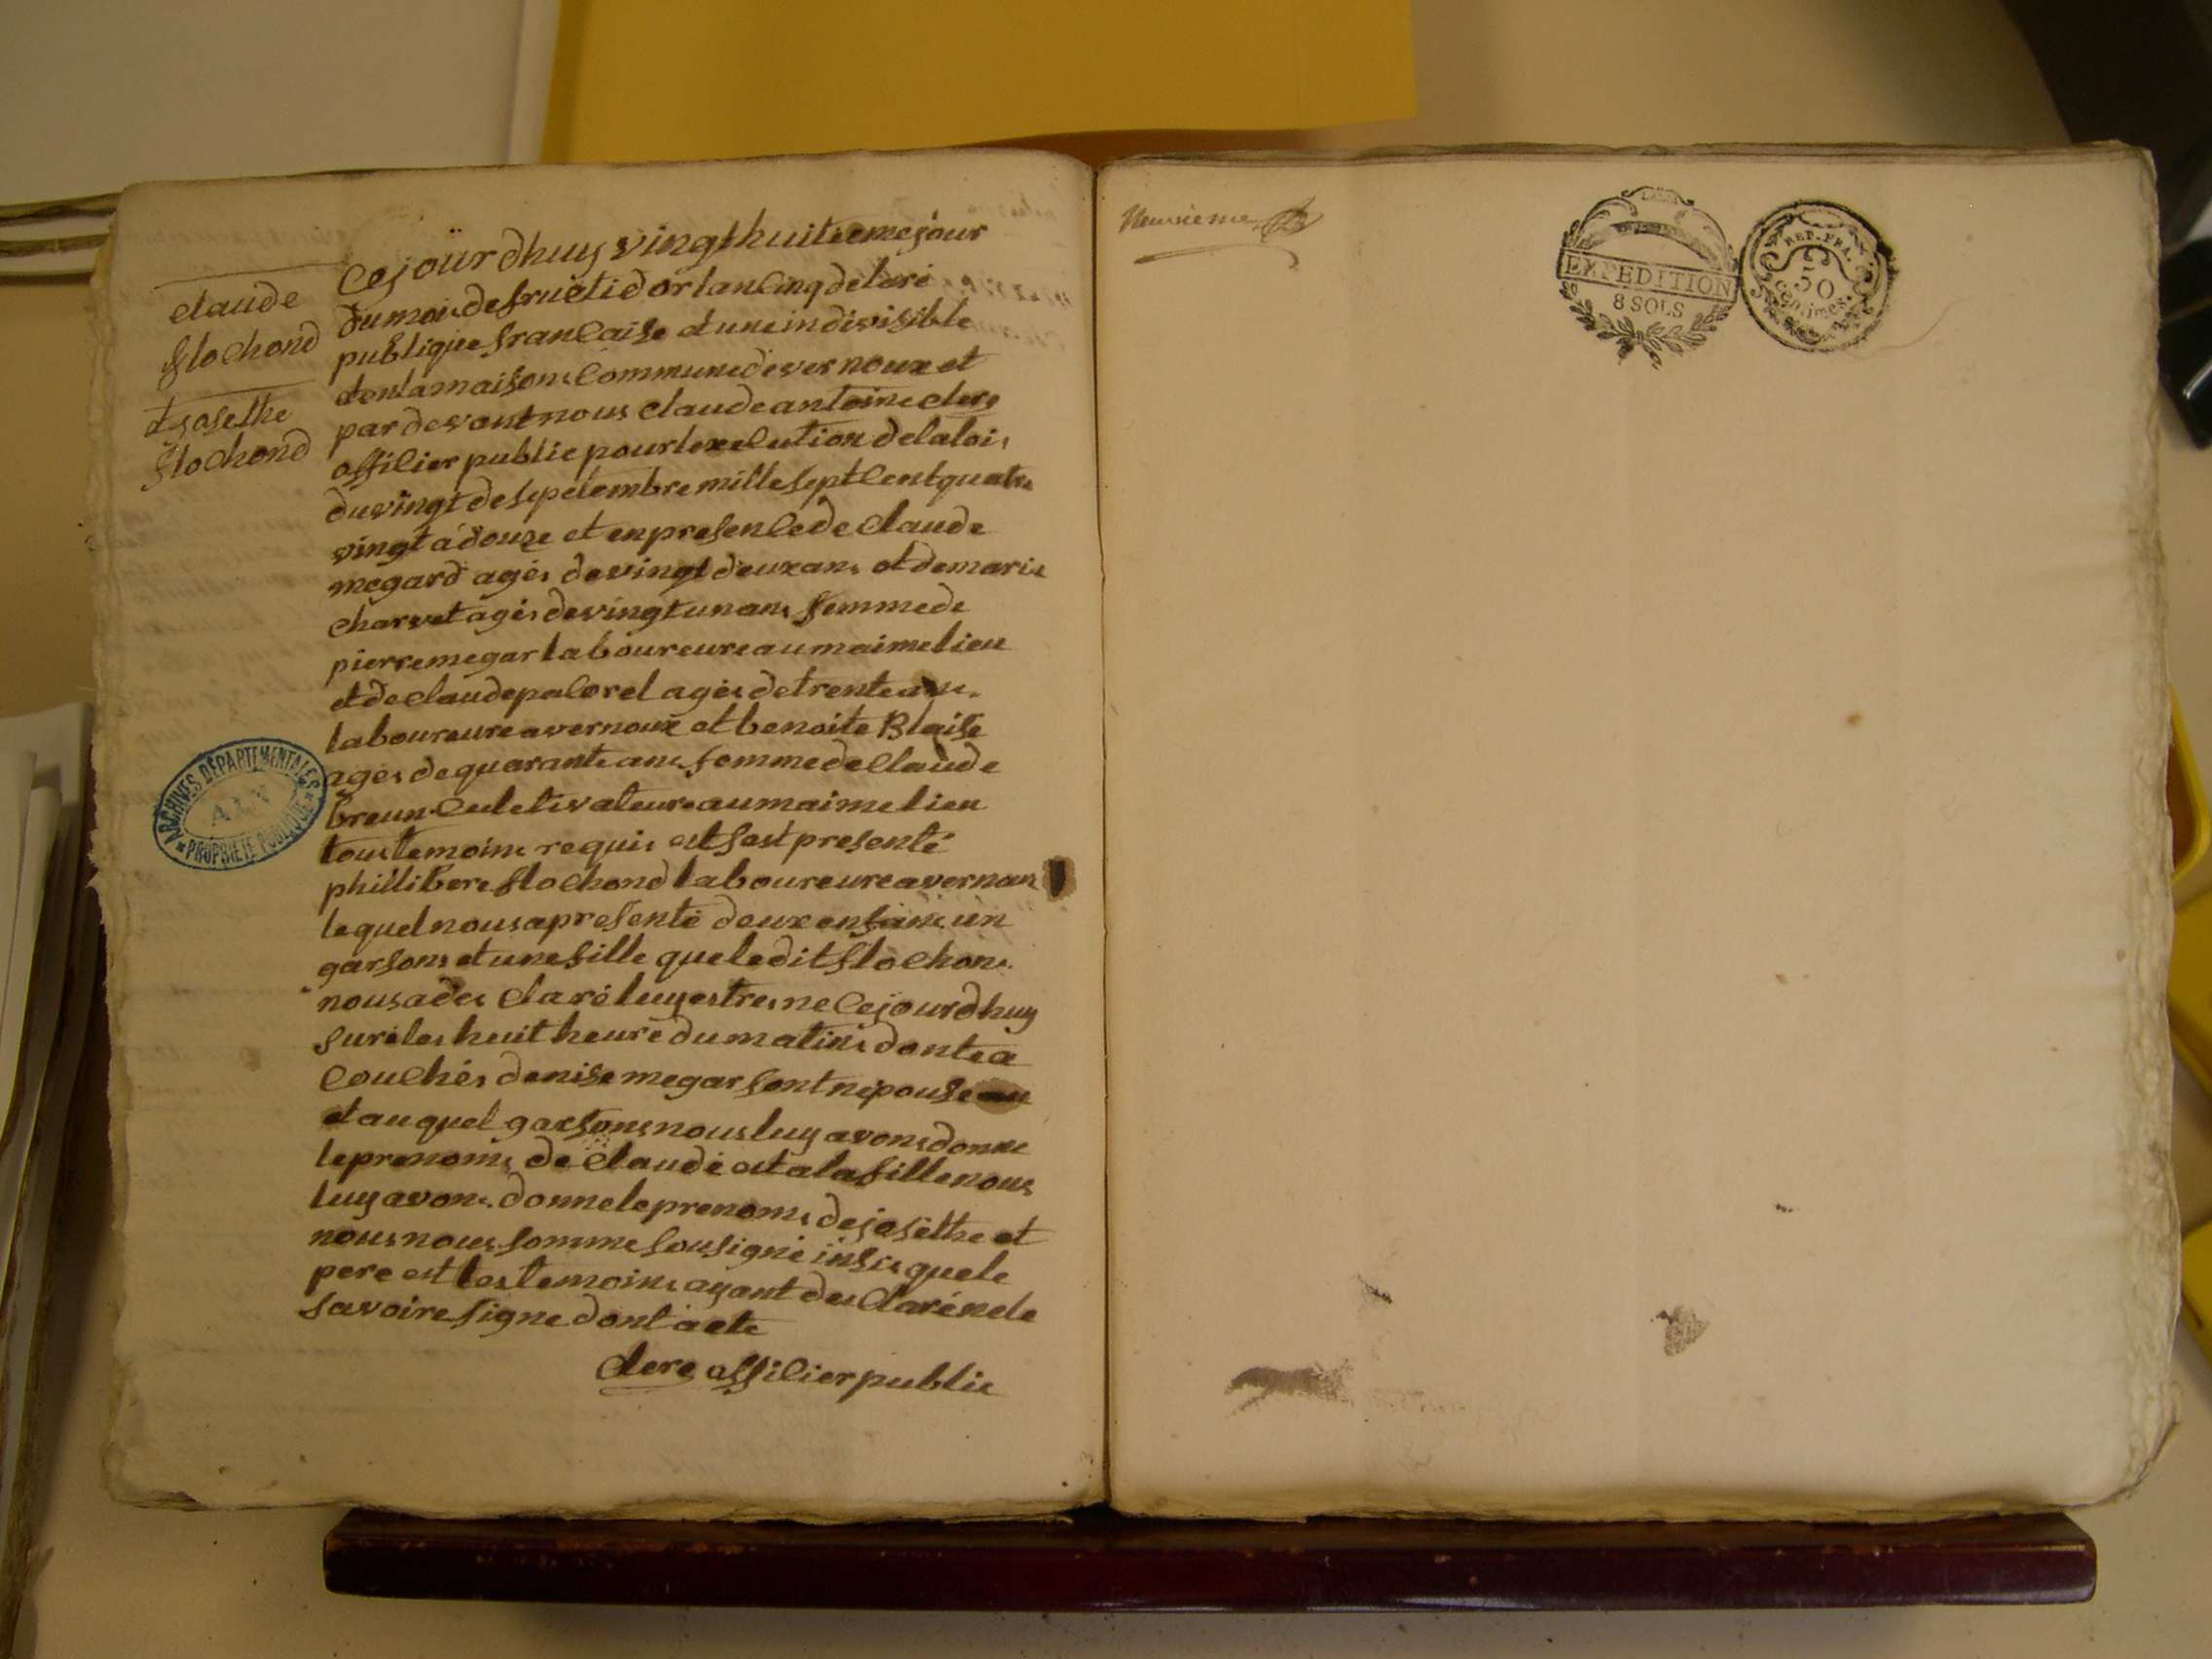 claude
flochond
et josethe
flochond
Cejourdhuy vingt huitiemejour
dumois defructidor lancinq deleré
publique francaise etuneindivisible
etenlamaison Communedevernoux et
pardevant nous claudeantoine clerc
officier public pourlexecution delaloi
duvingt desepetembre mille septCentquatre
vingt adouze et enpresencede Claude
megard agés devingt deuxans etdemarie
charvet agés devingtunans femmede
pierremegar laboureureaumaimelieu
etdeclaudepacoret agés detrenteans
laboureureavernoux et benoite Blaise
agés dequaranteans femmedeClaude
breun Culetivateureaumaimelieu
toustemoins requis est sest presenté
phillibere flochond laboureureavernoux
lequel nousapresenté deuxenfans un
garsons etunefille queledit flochons
nousades claré luyestresne Cejourdhuy
sureles huit heure dumatins dontea
Couchés denise megar sont nepouse
etauquel garsonsnousluy avonsdonne
leprenoms de Claude est alafillenous
luyavons donneleprenoms dejosethe et
nousnous somme sousigne insis quele
pere est lestemoins ayant des Clarénele
savoire signe dont acte
clerc officierpublic
ARCHIVES DÉPARTEMENTALES
AIN
PROPRIÉTÉ PUBLIQUE
Neuvieme
EXPEDITION
8 SOLS
REP. FRA.
50
centimes.